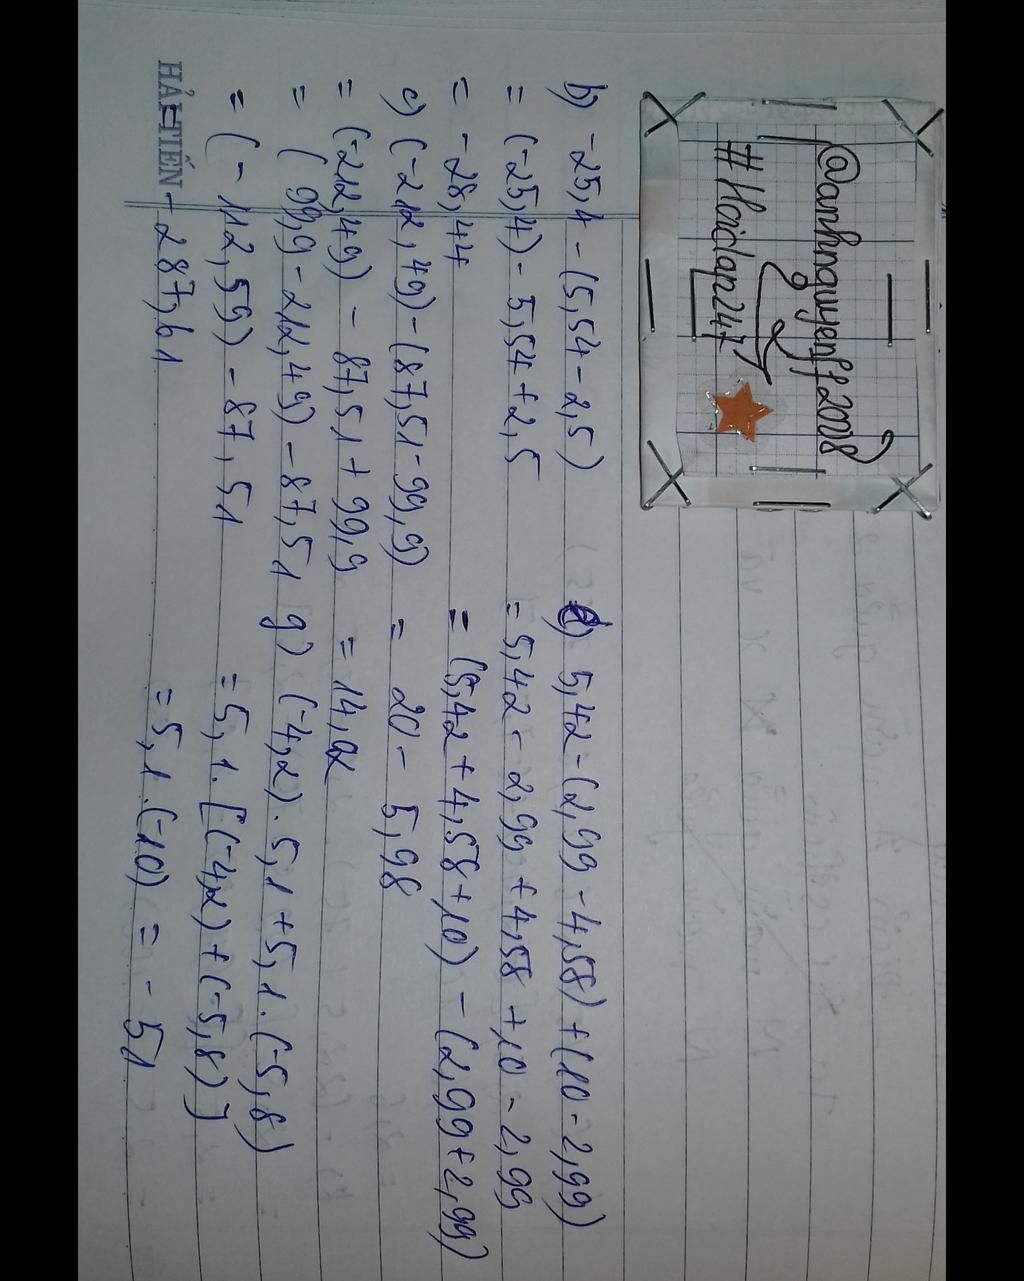 @anhnguyenff2008
#Hoidap247
b) -25,4 - (5,54 - 2,5)
= (-25,4) - 5,54 + 2,5
= -28,44
c) (-212,49) - (87,51 - 99,9)
= (-212,49) - 87,51 + 99,9
= (99,9 - 212,49) - 87,51
= (-112,59) - 87,51
= - 287,61
HẢI TIẾN
e) 5,42 - (2,99 - 4,58) + (10 - 2,99)
= 5,42 - 2,99 + 4,58 + 10 - 2,99
= (5,42 + 4,58 + 10) - (2,99 + 2,99)
= 20 - 5,98
= 14,02
g) (-4,2) . 5,1 + 5,1 . (-5,8)
= 5,1 . [(-4,2) + (-5,8)]
= 5,1 . (-10) = -51